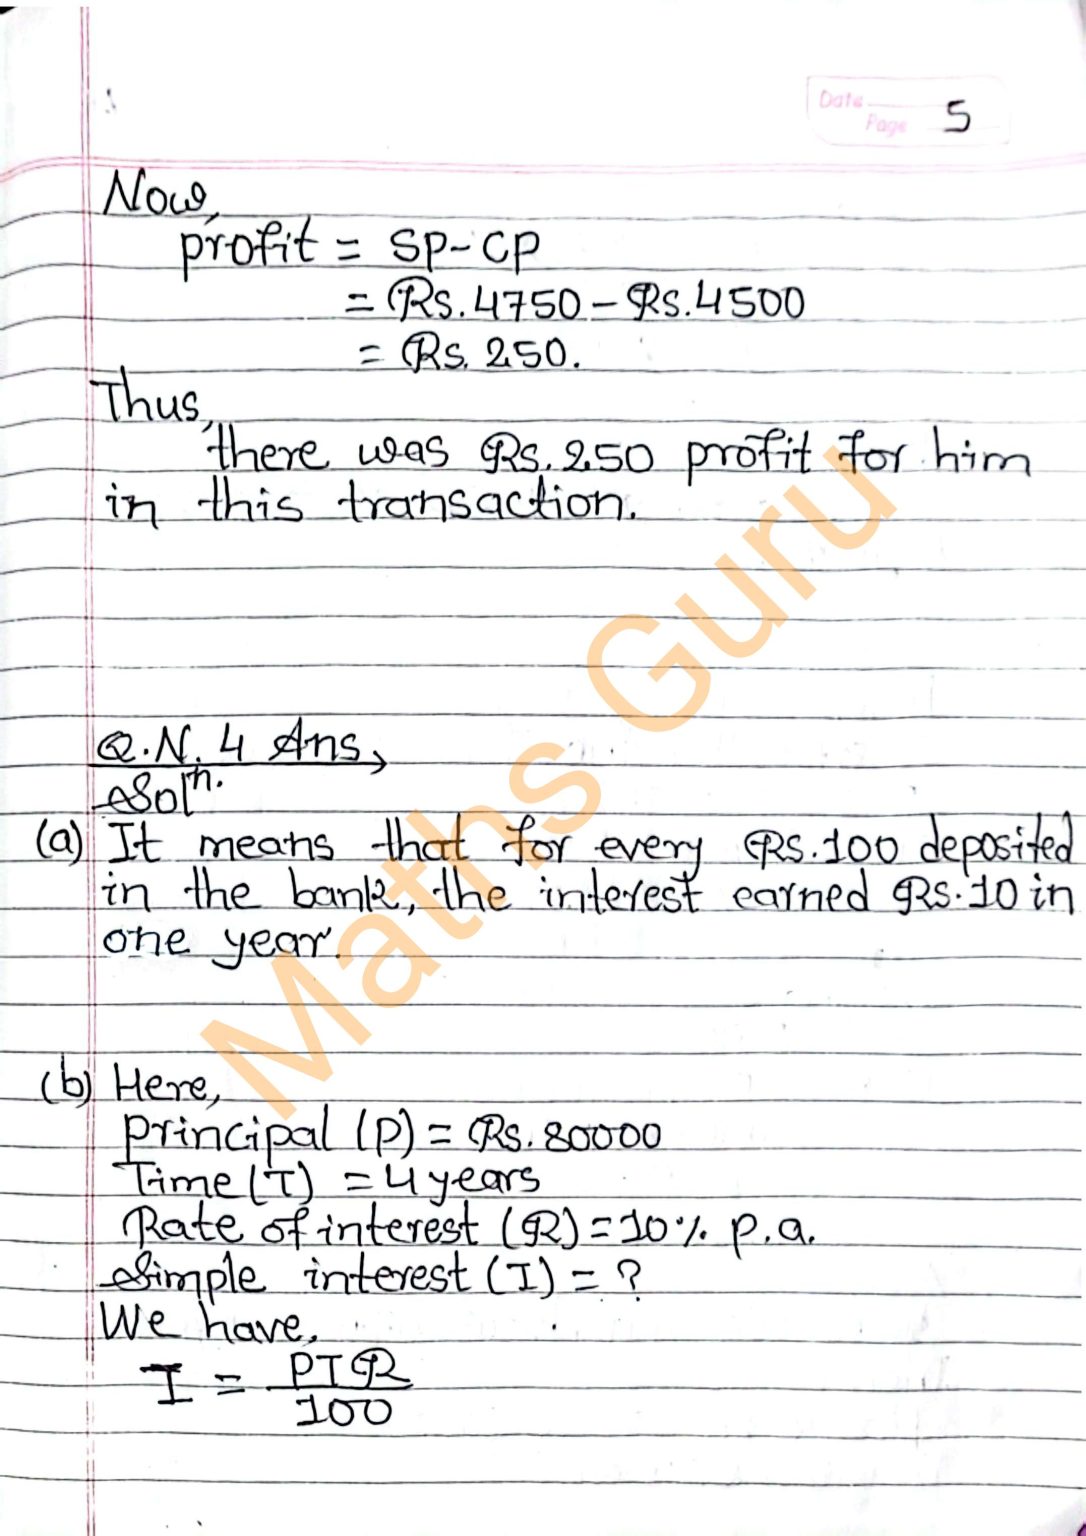 Date
Page 5
Now,
profit = SP-CP
= Rs. 4750 - Rs. 4500
= Rs. 250.
Thus,
there was Rs. 250 profit for him
in this transaction.
Q.N. 4 Ans,
Solⁿ.
(a) It means that for every Rs. 100 deposited
in the bank, the interest earned Rs. 10 in
one year.
(b) Here,
Principal (P) = Rs. 80000
Time (T) = 4 years
Rate of interest (R) = 10% p.a.
Simple interest (I) = ?
We have,
I = PTR
100
Maths Guru